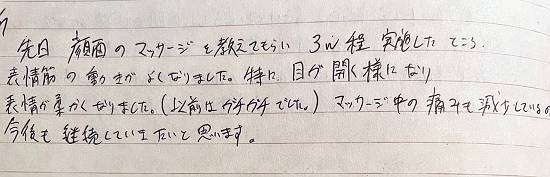 先日 顔面のマッサージを教えてもらい 3w程 実施したところ、
表情筋の動きがよくなりました。特に、目が開く様になり
表情が柔かくなりました。(以前はガチガチでした。) マッサージ中の痛みも減少しているの
今後も継続していきたいと思います。